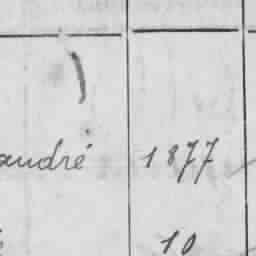 andré 1877
10